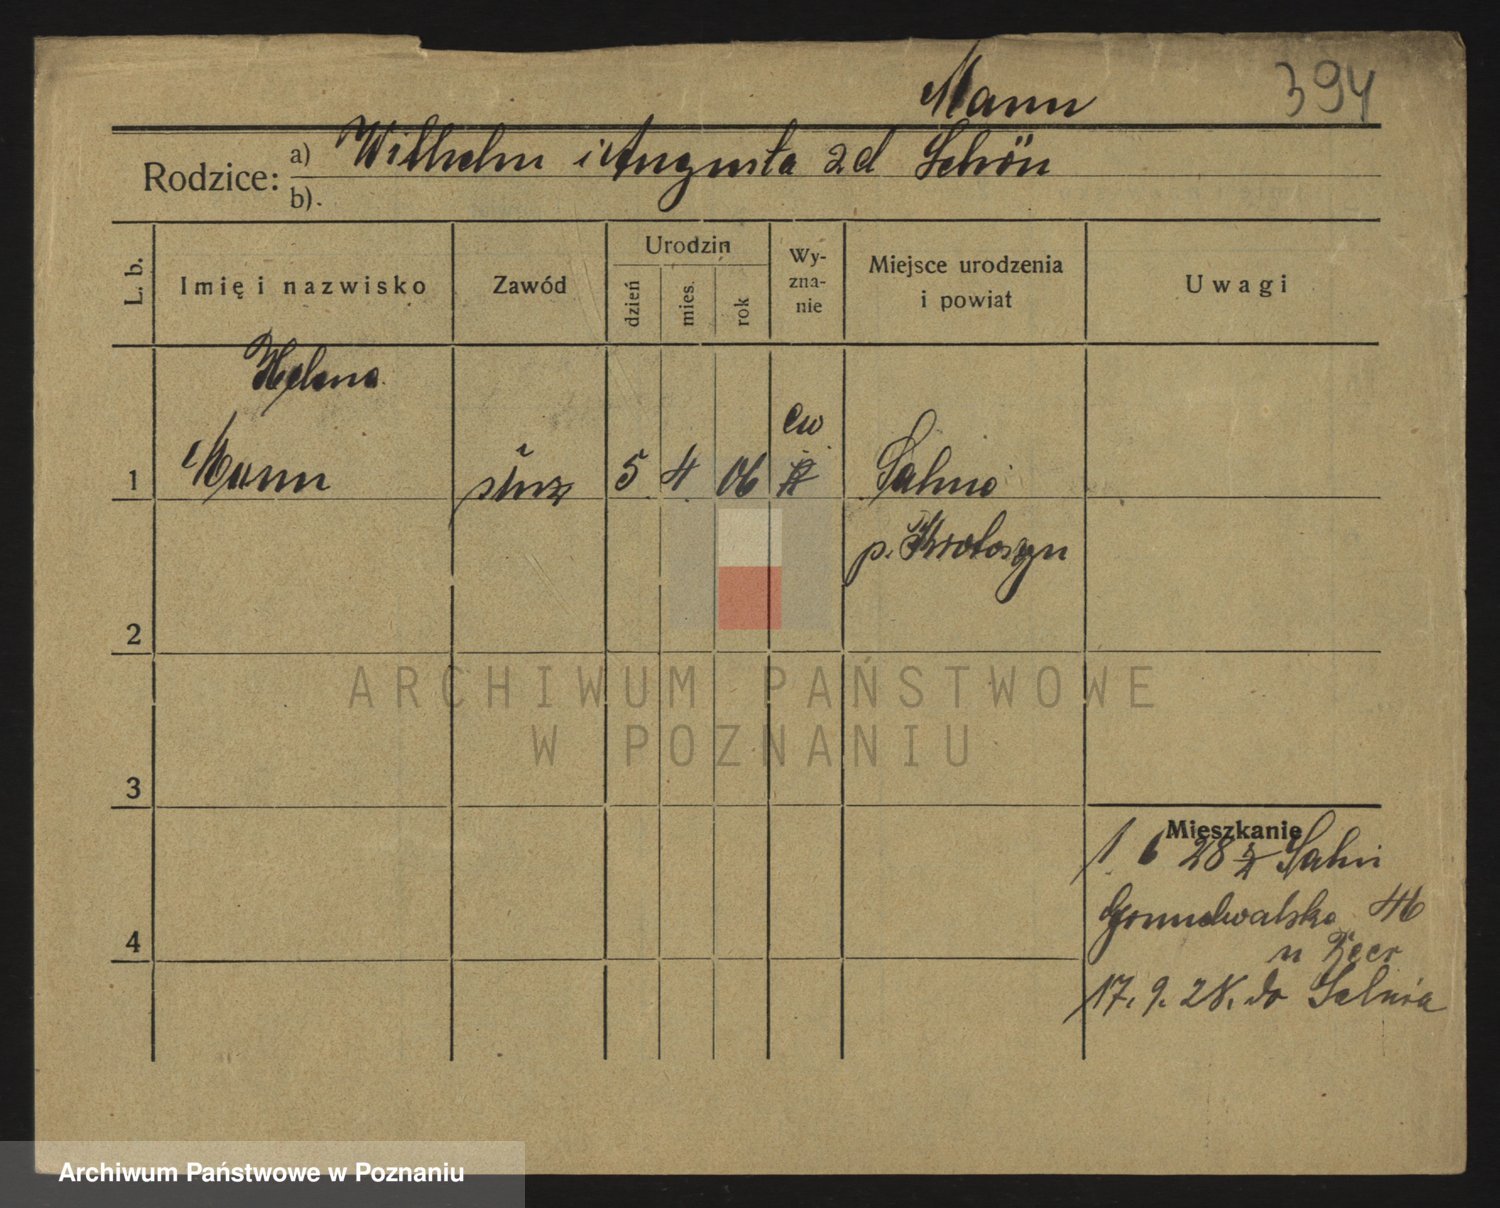 Mann
394
Rodzice: a) Wilhelm i Augusta zd Schön
b).
L. b.
Imię i nazwisko
Zawód
Urodzin
dzień
mies.
rok
Wy-
zna-
nie
Miejsce urodzenia
i powiat
Uwagi
Helena
1 Mann służ 5 4 06 ew Salnia
p. Krotoszyn
2
3
4
Mieszkanie
1. 6 28 z Salni
Grunwaldzka 46
u Beer
17. 9. 28. do Salnia
ARCHIWUM PAŃSTWOWE
W POZNANIU
Archiwum Państwowe w Poznaniu